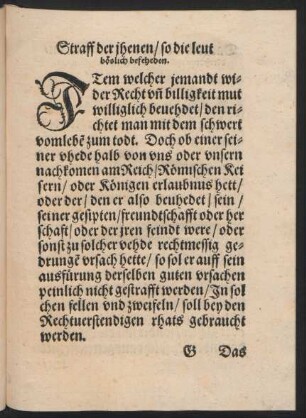 Straff der jhenen/ so die leut
bößlich befehden.
ITem welcher jemandt wi-
der Recht vñ billigkeit mut
williglich beuehdet/ den ri-
chtet man mit dem schwert
vom lebẽ zum todt. Doch ob einer sei-
ner vhede halb von vns oder vnsern
nachkomen am Reich/ Römischen Kei
sern/ oder Königen erlaubnus hett/
oder der/ den er also beuhedet/ sein/
seiner gesipten/ freundtschafft oder her
schafft/ oder der jren feindt were/ oder
sonst zu solcher vehde rechtmessig ge-
drungẽ vrsach hette/ so sol er auff sein
ausfürung derselben guten vrsachen
peinlich nicht gestrafft werden/ In sol
chen fellen vnd zweifeln/ soll bey den
Rechtuerstendigen rhats gebraucht
werden.
G Das